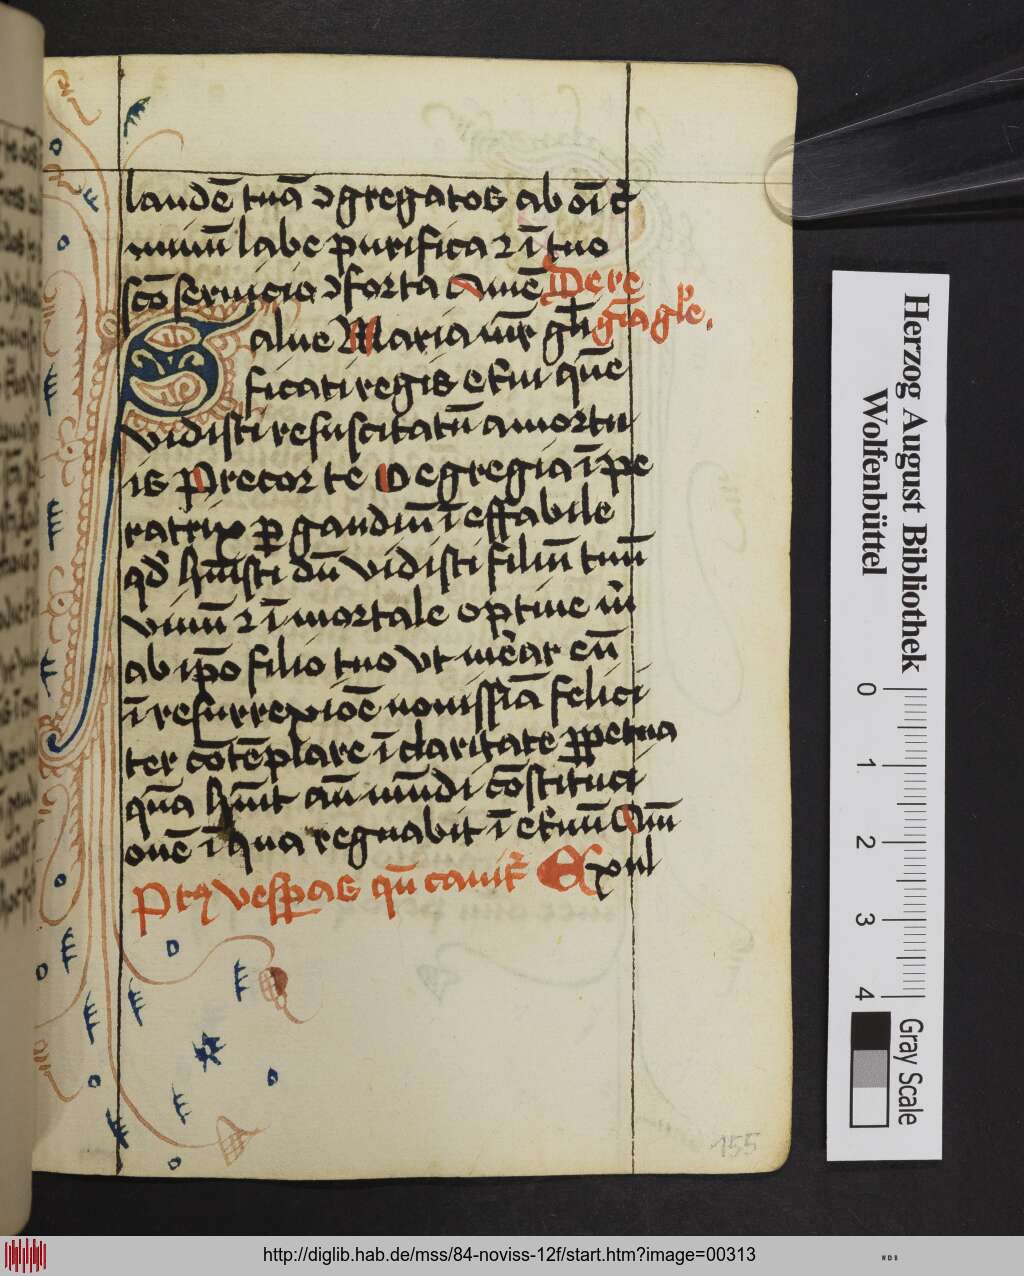 laudē tuā ɔgregatos ab oī c̄
minū labe purifica ⁊ ī tuo
scō seruicio ɔforta Amē De re
Salue Maria mr̄ glī gīa gl'e.
ficati regis etʼni quē
vidisti resuscitatū a mortu
is Precor te O egregia īpe
ratrix ꝑ gaudiū īeffabile
qd̄ hūisti dū vidisti filiū tuū
viuū ⁊ īmortale optine m̄
ab ip̄o filio tuo vt merear eū
ī resurrexiōe nouissīa felici
ter cōtēplare ī claritate ꝑpetua
quā hūit aū mūdi cōstituci
onē ī qua regnabit ī etʼnū Am̄
Ptꝫ vesꝑas qn̄ canitʳ Exul
155
Herzog August Bibliothek
Wolfenbüttel
0 1 2 3 4
Gray Scale
http://diglib.hab.de/mss/84-noviss-12f/start.htm?image=00313